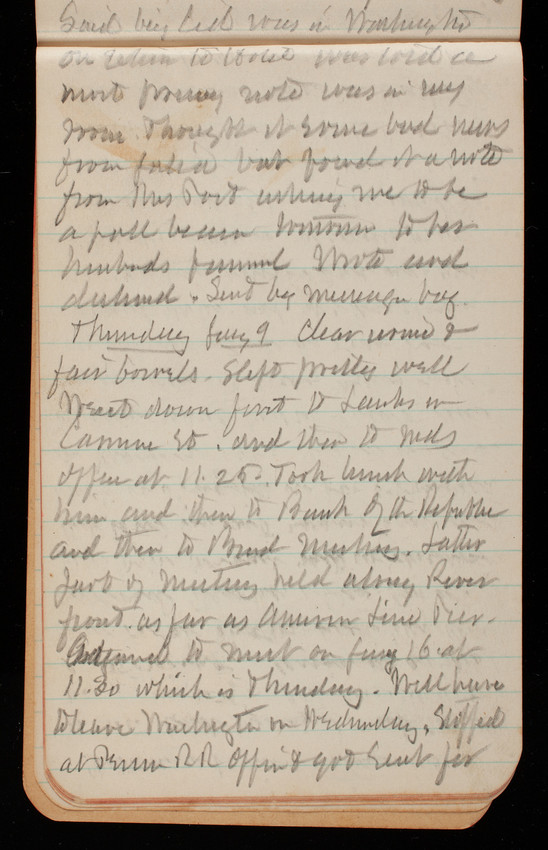 Said big Cid was in Washington
on return to Hotel was told a
most pressing note was in my
room. Thought it some bad news
from but found it a note
from Mrs Post asking me to be
a pall bearer tomorrow to her
husbands funeral Wrote and
declined. Sent by message boy.
Thursday Jany 9 Clear wind &
fair bowels. Slept pretty well
Went down first to Lauks in
Canine St. and then to Neds
office at 11.25. Took lunch with
him and then to Bank of the Republic
and then to Board Meeting. Latter
part of Meeting held along River
front. as far as American Line Pier.
Adjourned to meet on Jany 16 at
11.30 which is Thursday. Will have
to leave Washington on Wednesday. Stopped
at Penn RR Office & got Seat for